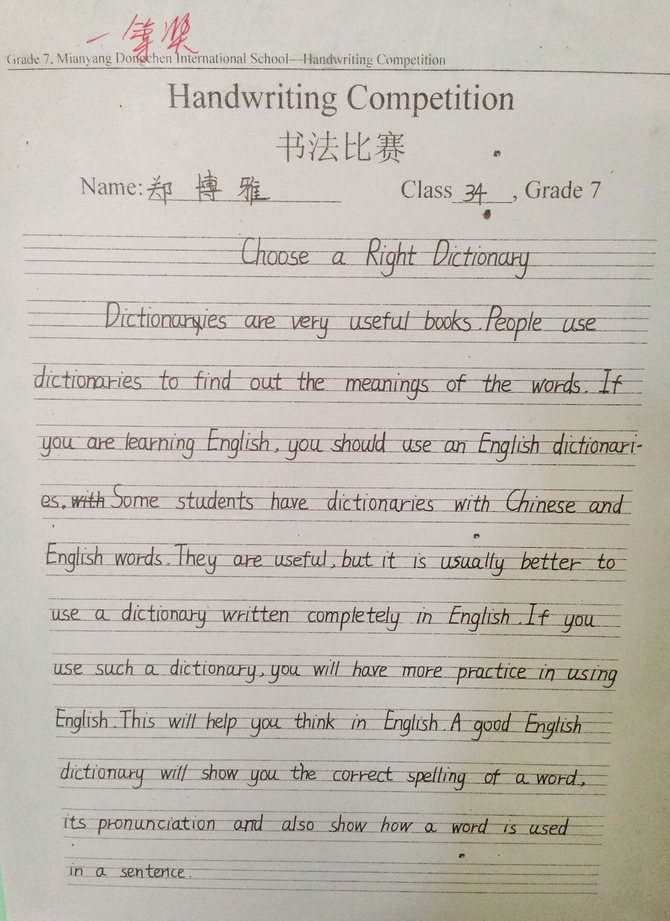 一等奖
Grade 7, Mianyang Dongchen International School—Handwriting Competition
Handwriting Competition
书法比赛
Name: 郑博雅 Class 34, Grade 7
Choose a Right Dictionary
Dictionaryies are very useful books. People use
dictionaries to find out the meanings of the words. If
you are learning English, you should use an English dictionari-
es. with Some students have dictionaries with Chinese and
English words. They are useful, but it is usually better to
use a dictionary written completely in English. If you
use such a dictionary, you will have more practice in using
English. This will help you think in English. A good English
dictionary will show you the correct spelling of a word,
its pronunciation and also show how a word is used
in a sentence.